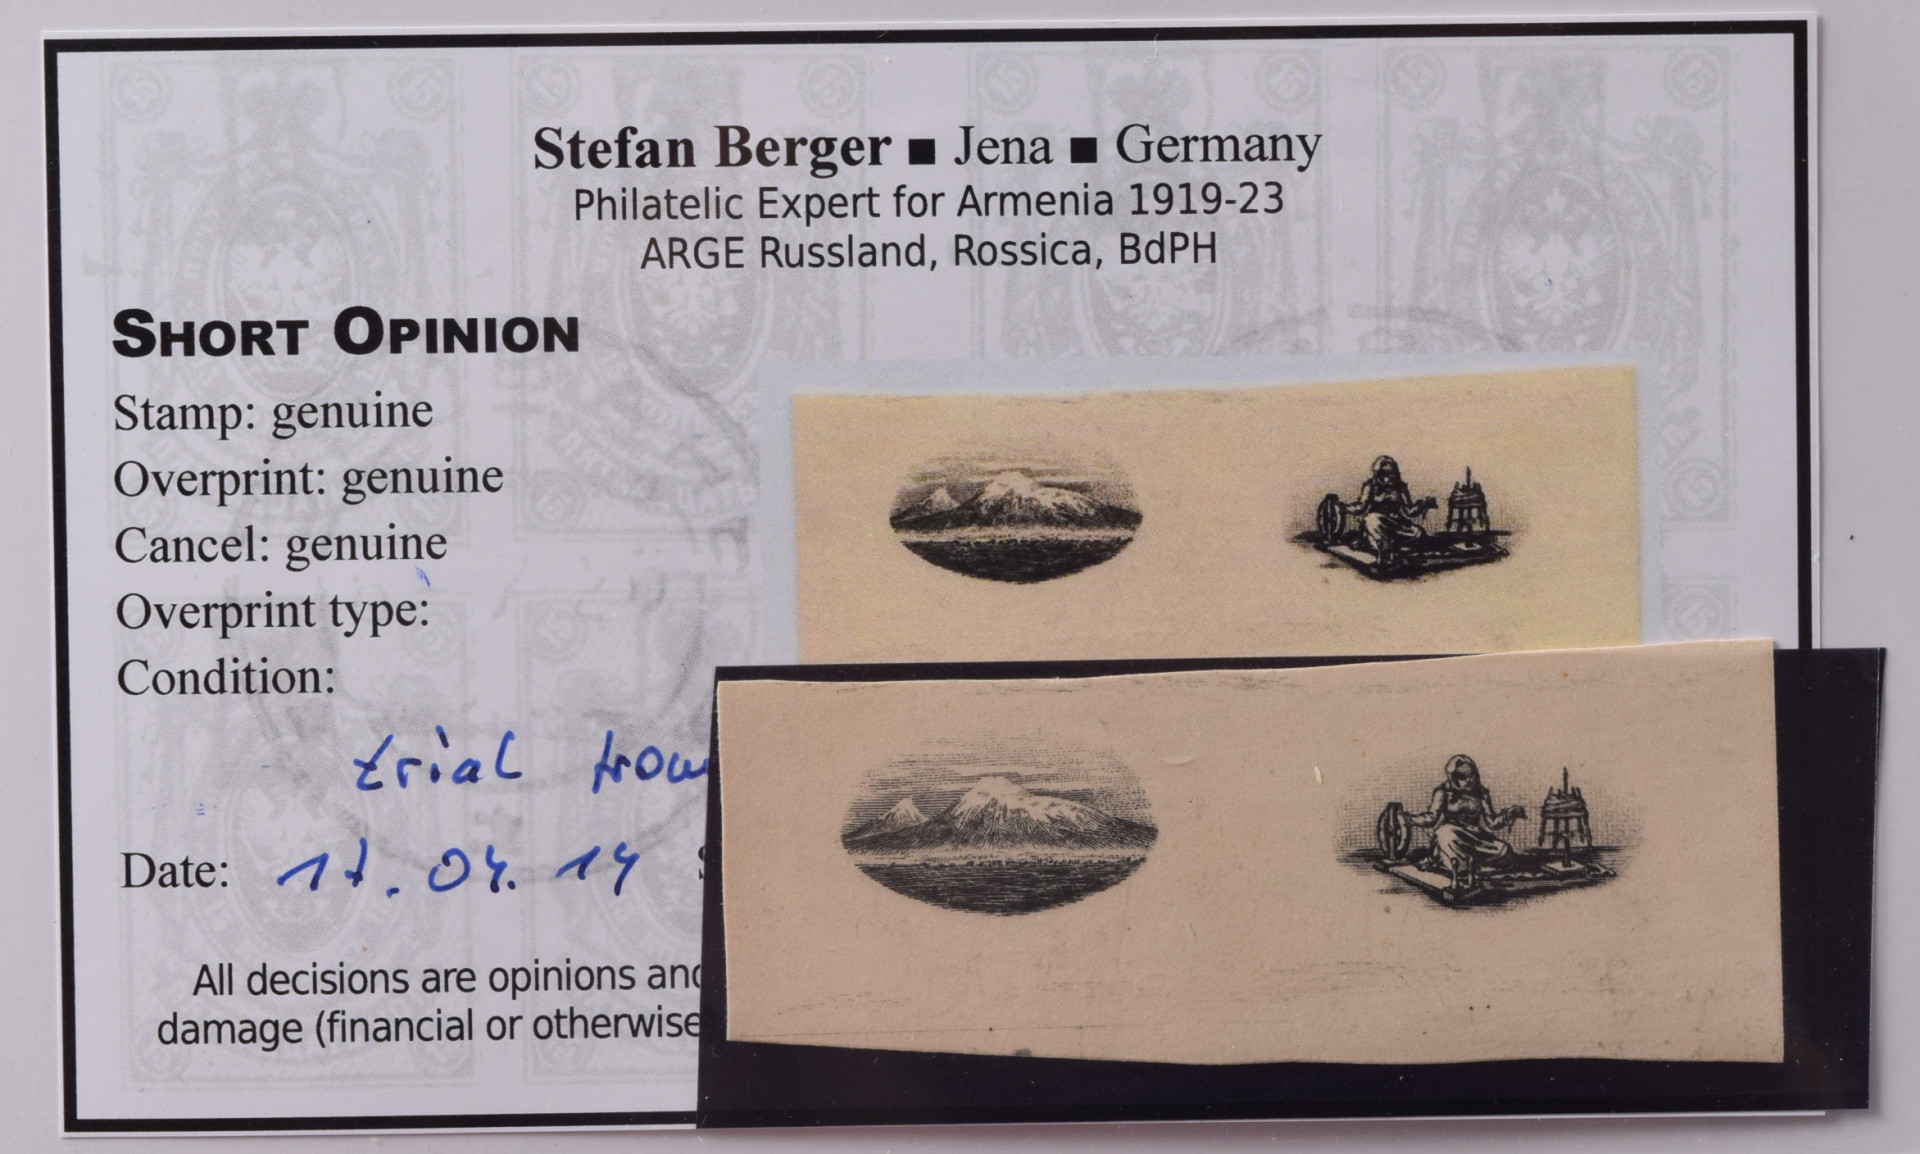 Stefan Berger ■ Jena ■ Germany
Philatelic Expert for Armenia 1919-23
ARGE Russland, Rossica, BdPH
SHORT OPINION
Stamp: genuine
Overprint: genuine
Cancel: genuine
Overprint type:
Condition:
trial
Date: 17.04.14
All decisions are opinions and
damage (financial or otherwise